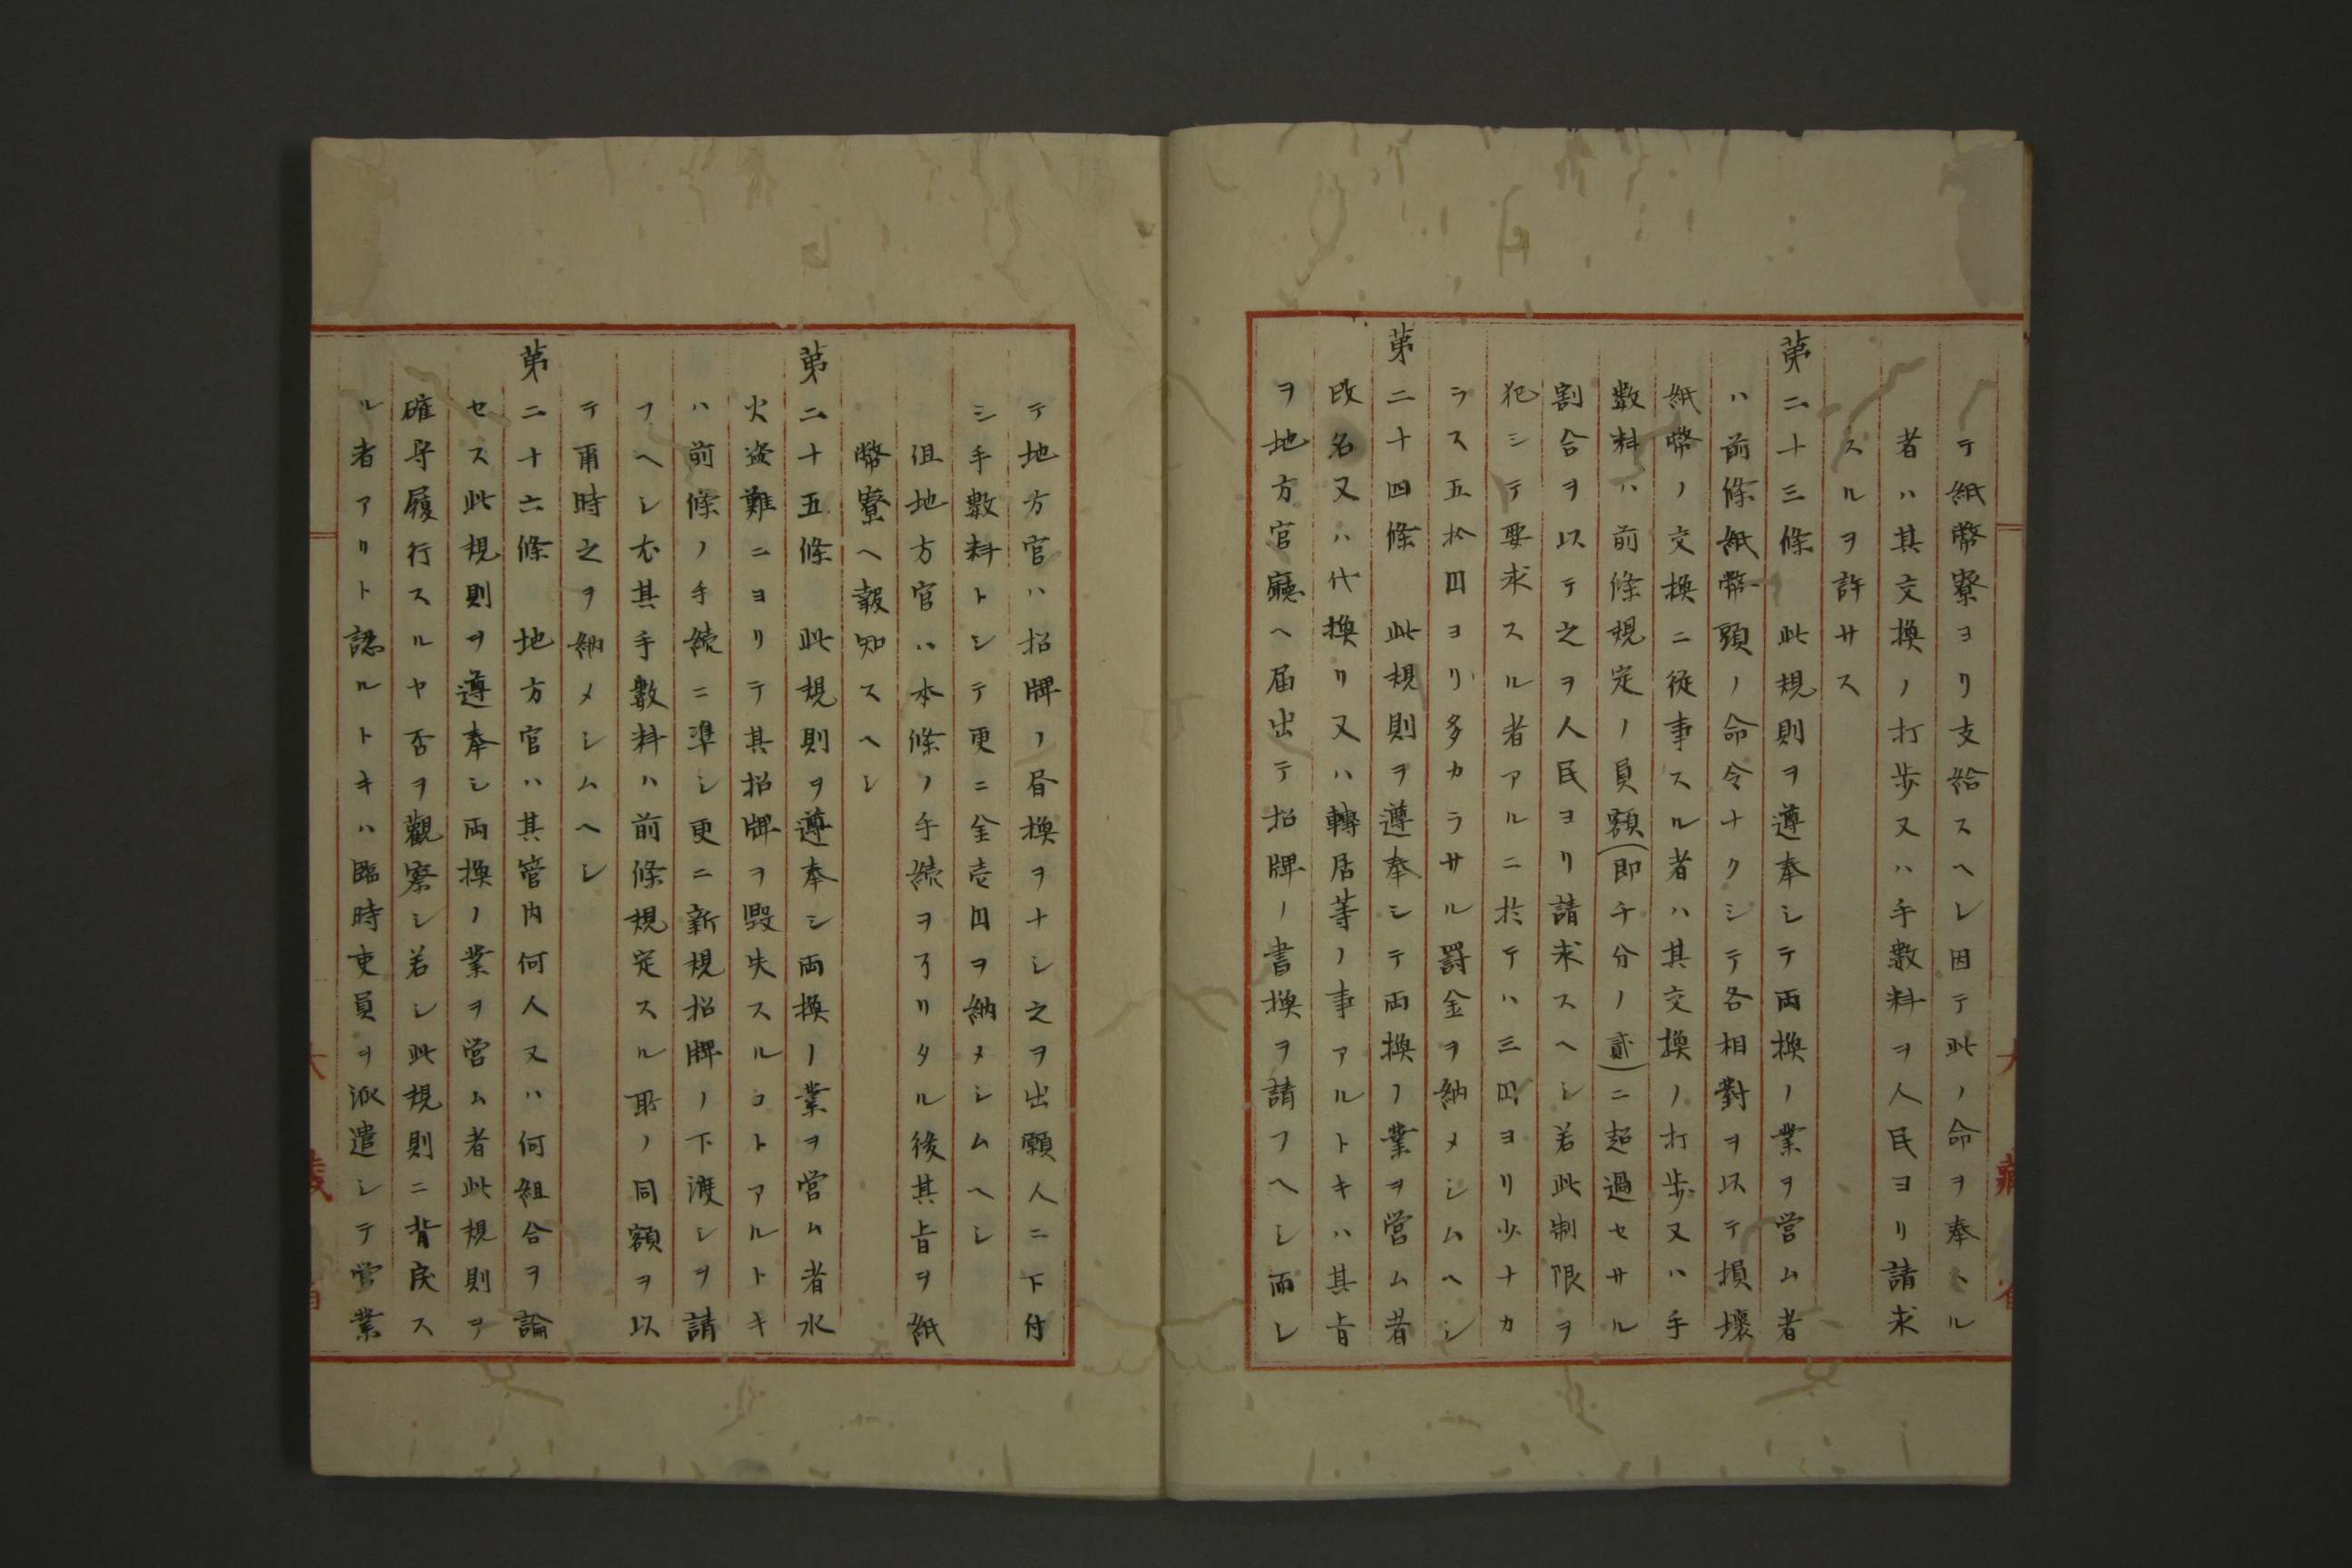 テ紙幣寮ヨリ支給スヘシ因テ此ノ命ヲ奉ヽル
者ハ其交換ノ打歩又ハ手數料ヲ人民ヨリ請求
スルヲ許サス
第二十三條　此規則ヲ遵奉シテ両換ノ業ヲ営ム者
ハ前條紙幣頭ノ命令ナクシテ各相對ヲ以テ損壞
紙幣ノ交換ニ従事スル者ハ其交換ノ打歩又ハ手
數料ハ前條規定ノ員額(即チ分ノ貳)ニ超過セサル
割合ヲ以テ之ヲ人民ヨリ請求スヘシ若此制限ヲ
犯シテ要求スル者アルニ於テハ三円ヨリ少ナカ
ラス五拾円ヨリ多カラサル罰金ヲ納メシムヘシ
第二十四條　此規則ヲ遵奉シテ両換ノ業ヲ営ム者
改名又ハ代換リ又ハ轉居等ノ事アルトキハ其旨
ヲ地方官廳ヘ届出テ招牌ノ書換ヲ請フヘシ而シ
テ地方官ハ招牌ノ昏換ヲナシ之ヲ出願人ニ下付
シ手數料トシテ更ニ金壱円ヲ納メシムヘシ
但地方官ハ本條ノ手続ヲ了リタル後其旨ヲ紙
幣寮ヘ報知スヘシ
第二十五條　此規則ヲ遵奉シ両換ノ業ヲ営ム者水
火盗難ニヨリテ其招牌ヲ毀失スルコトアルトキ
ハ前條ノ手続ニ準シ更ニ新規招牌ノ下渡シヲ請
フヘシ尤其手數料ハ前條規定スル所ノ同額ヲ以
テ爾時之ヲ納メシムヘシ
第二十六條　地方官ハ其管内何人又ハ何組合ヲ論
セス此規則ヲ遵奉シ両換ノ業ヲ営ム者此規則ヲ
確守履行スルヤ否ヲ觀察シ若シ此規則ニ背戻ス
ル者アリト認ルトキハ臨時吏員ヲ派遣シテ営業